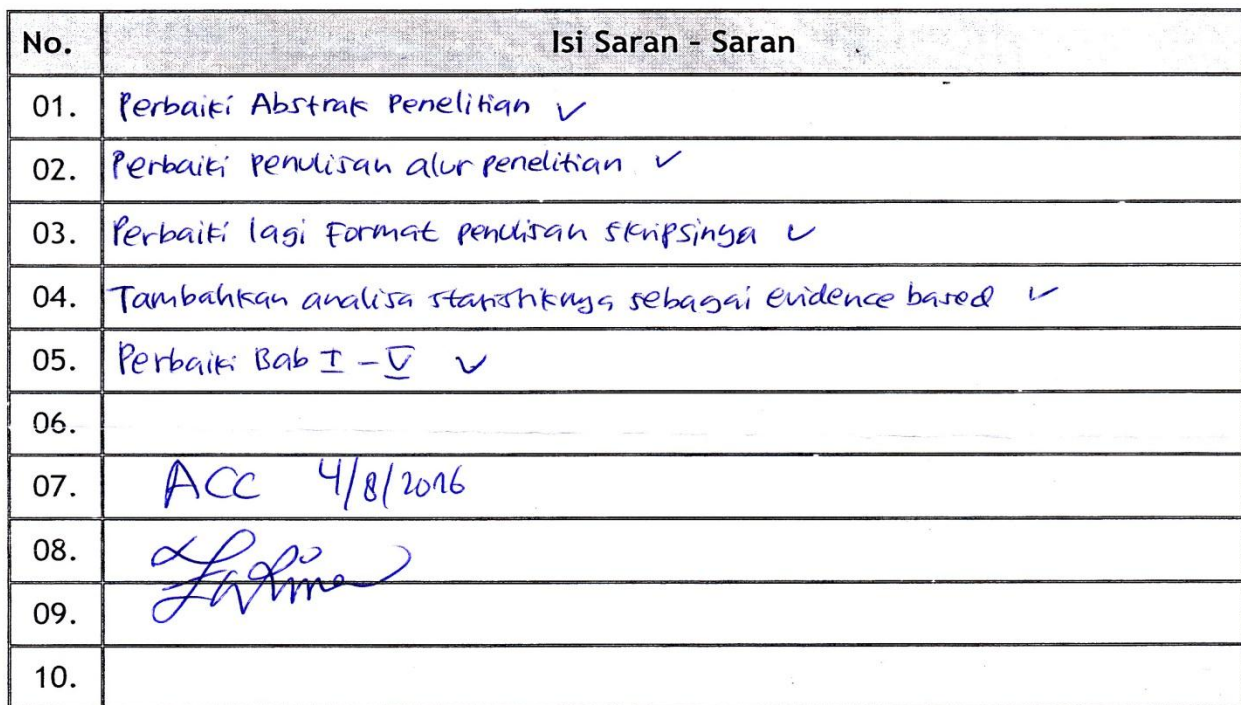 No. Isi Saran - Saran
01. Perbaiki Abstrak Penelitian ✓
02. Perbaiki Penulisan alur penelitian ✓
03. Perbaiki lagi Format penulisan skripsinya ✓
04. Tambahkan analisa statistiknya sebagai evidence based ✓
05. Perbaiki Bab I - V ✓
06.
07. ACC 4/8/2016
08.
09.
10.